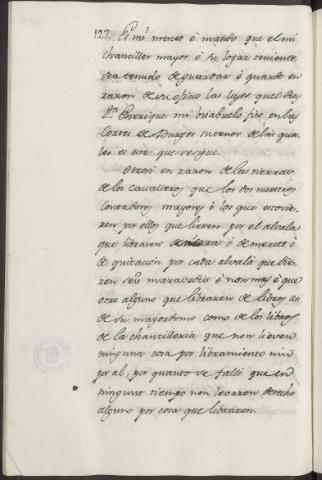 127. Es mi merced é mando que el mi
Chanciller mayor é su logar teniente
sea tenudo de guardar é guarde en
razon de su oficio las leyes quel Rey
Dn. Enrrique mi trisabuelo fizo en las
Cortes de Burgos su tenor de las qua
les es este que se sigue.
Otrosi en razon de las tierras
de los cavalleros que los dos nuestros
Contadores mayores ó los que estovie-
ren por ellos que lieven por el alvala
que libraren de tierra ó de merced ó
de quitacion por cada alvalá que die-
ren seis maravedis é non mas é que
otro alguno que libraren de libros asi
de su mayordomo como de los libros
de la chancilleria que non lieven
ninguna cosa por libramiento nin
por al, por quanto se falló que en
ningunt tiempo non levaron derecho
alguno por cosa que libraron.